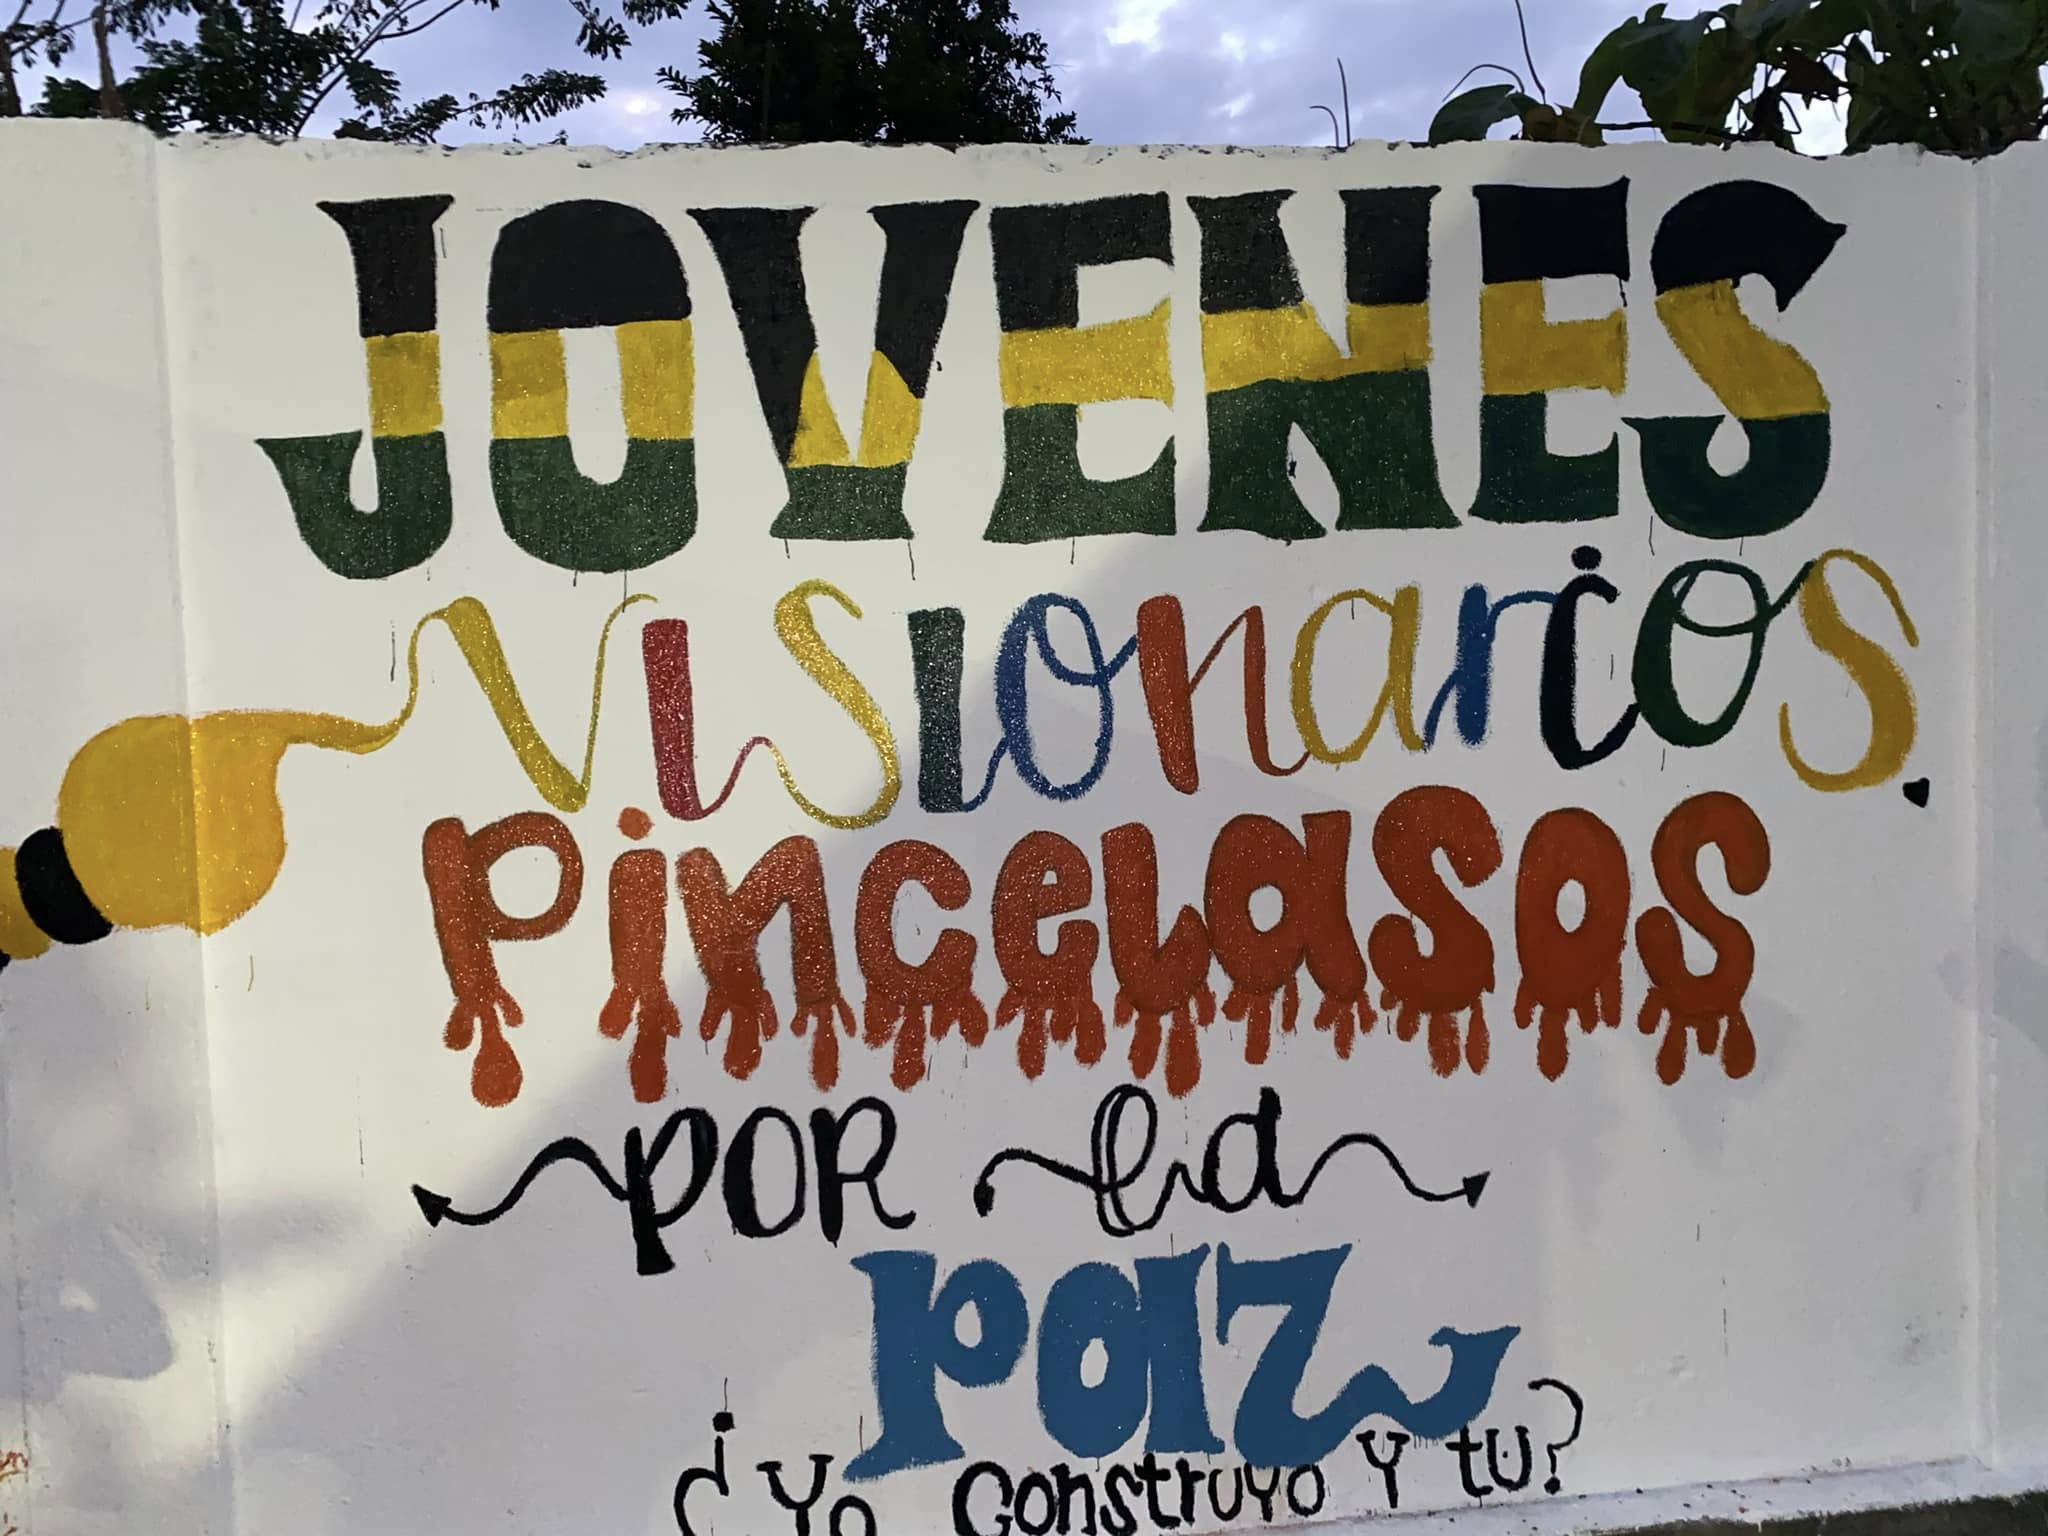 JOVENES
visionarios
pincelasos
POR la
paz
¿Yo construyo Y tú?